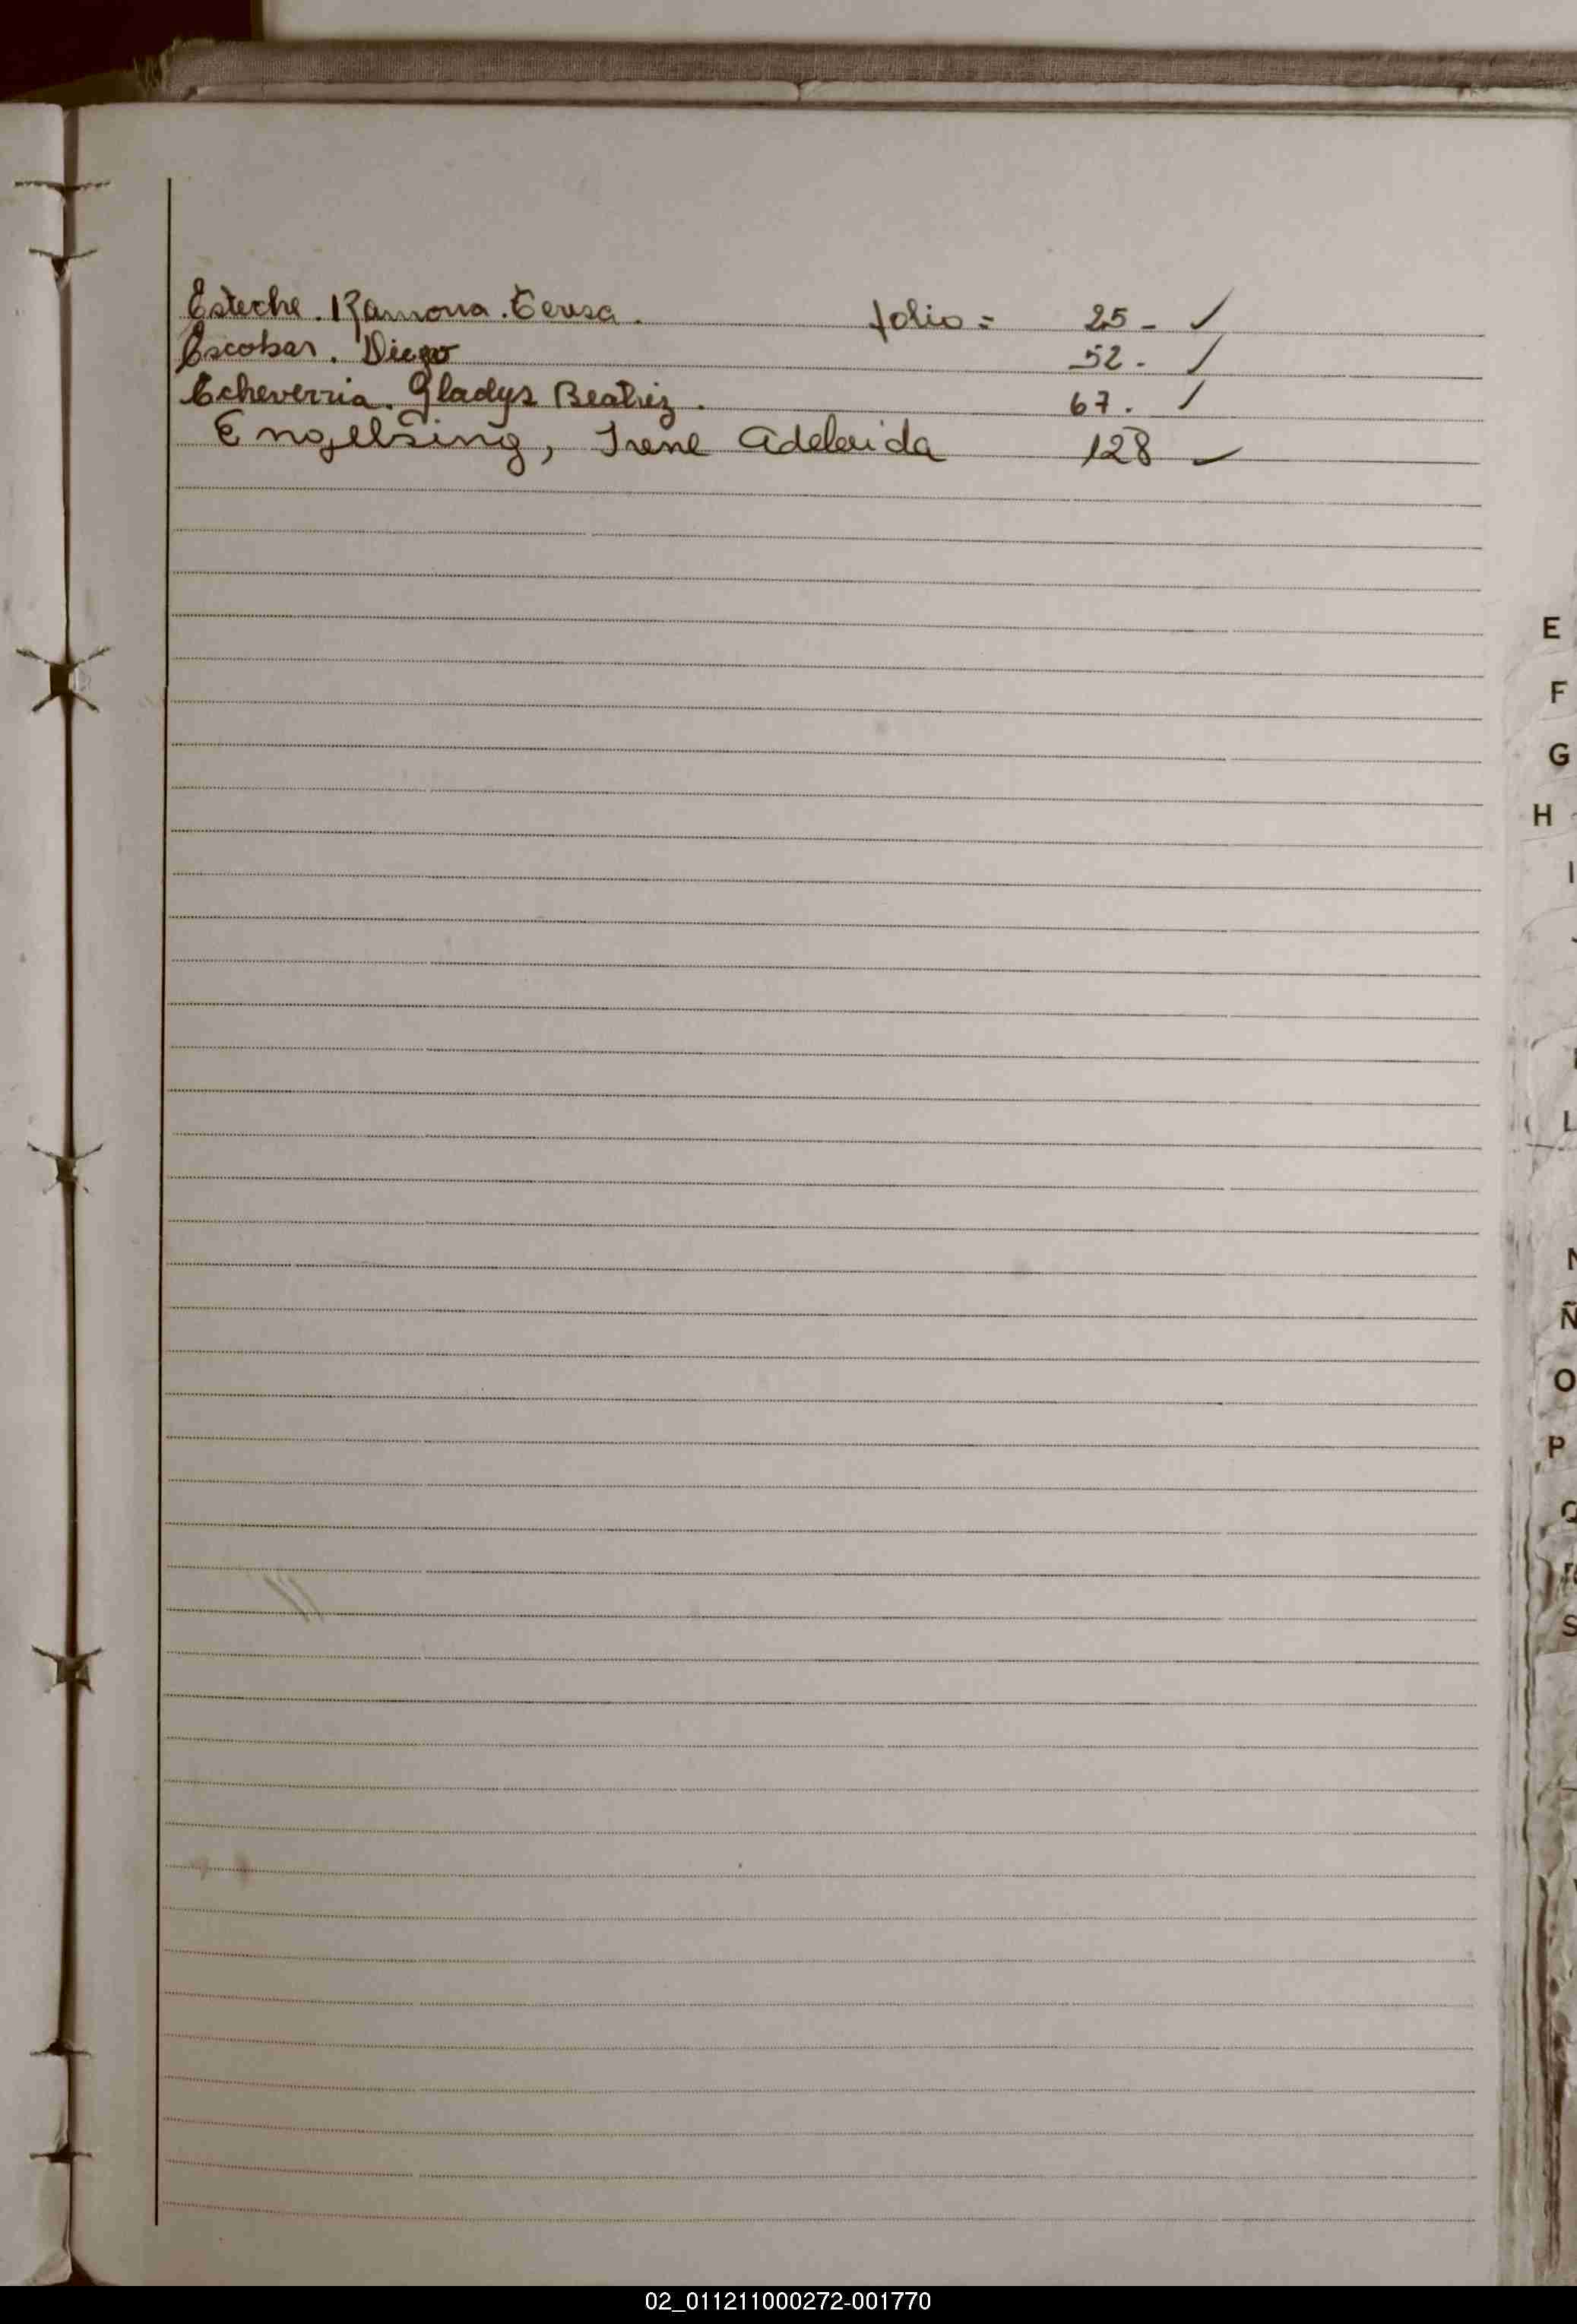 Esteche. Ramona. Teresa. folio = 25 - ✓
Escobar. Diego 52. ✓
Echeverria. Gladys Beatriz. 67. ✓
Engelsing, Irene Adelaida 128 ✓
E
F
G
H
I
L
N
Ñ
O
P
Q
S
02_011211000272-001770